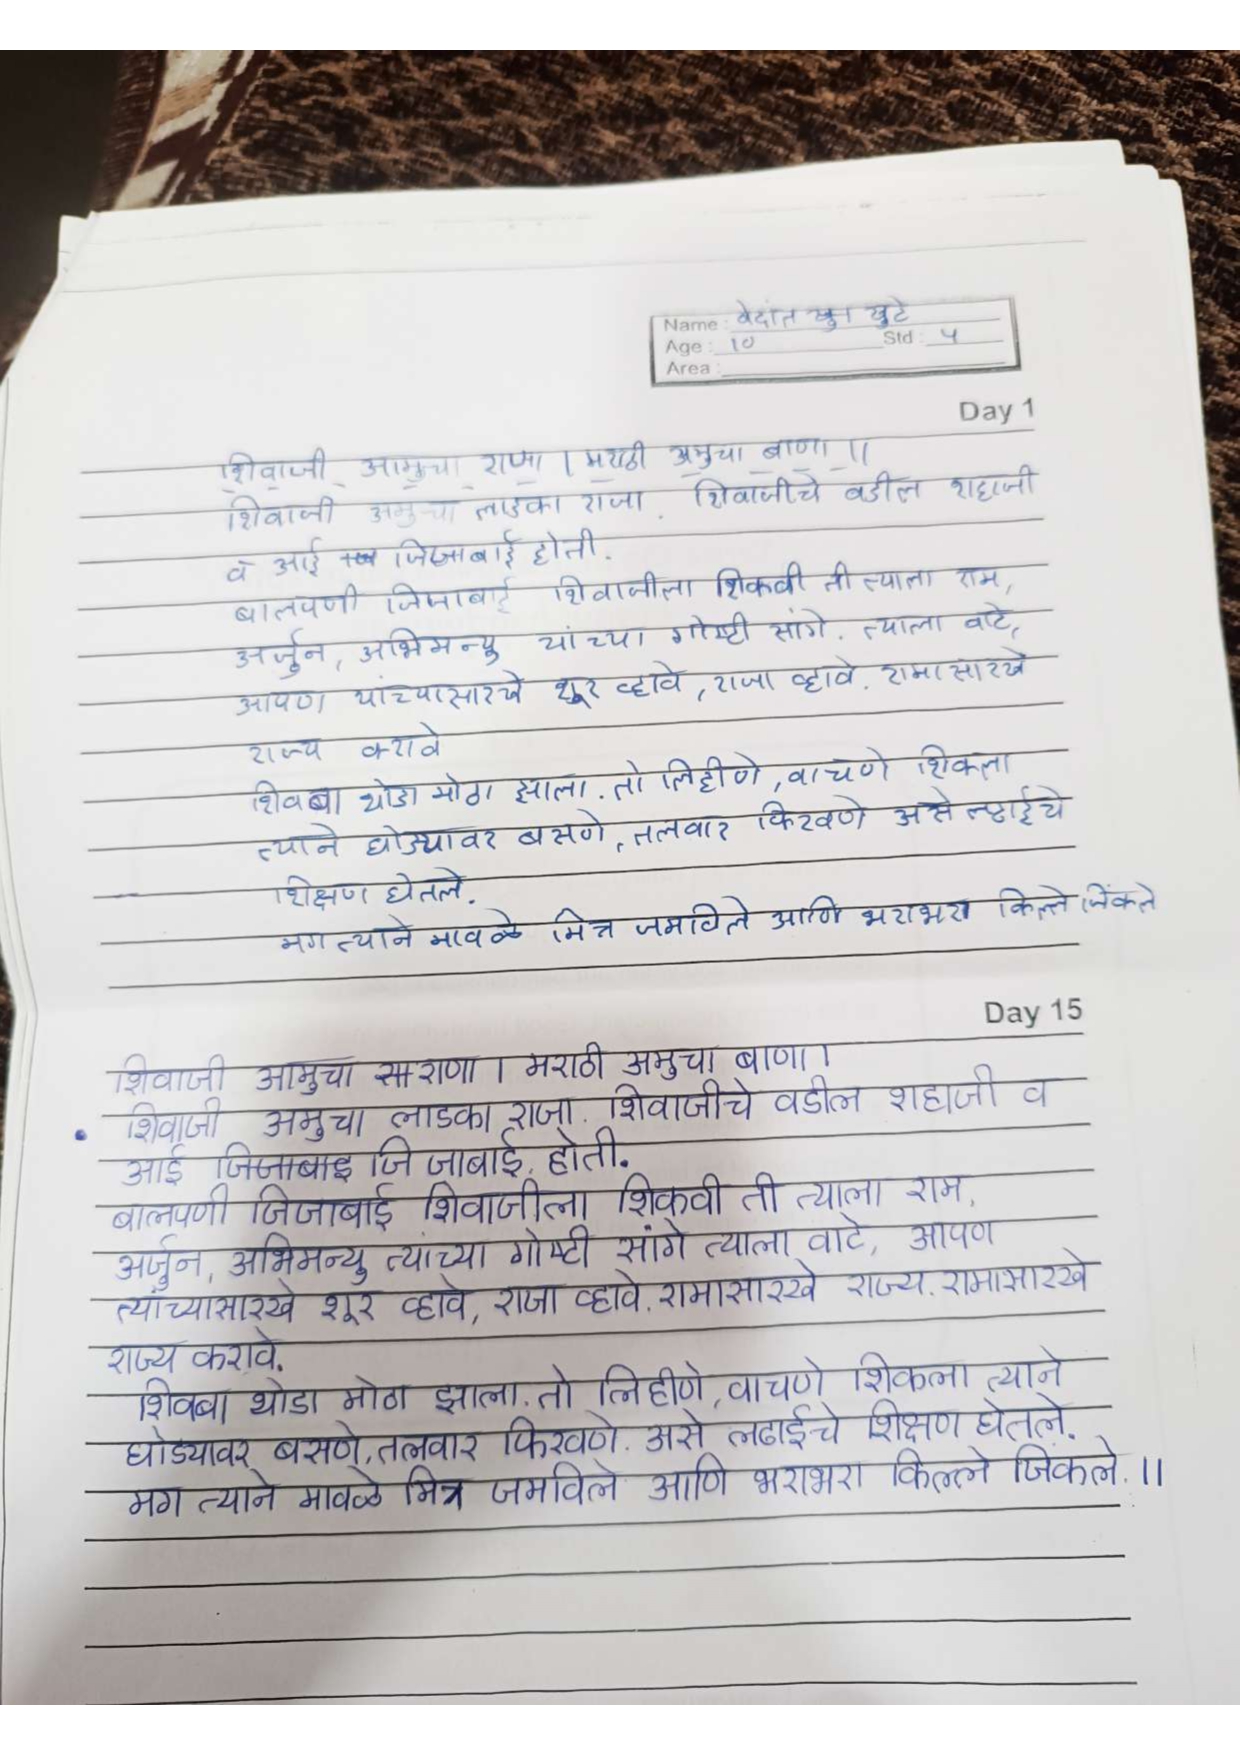 Name : वेदांत खुटे
Age : 10 Std : 4
Area :
Day 1
शिवाजी आमुचा राणा । मराठी अमुचा बाणा ॥
शिवाजी अमुचा लाडका राजा. शिवाजीचे वडील शहाजी
व आई जिजाबाई होती.
बालपणी जिजाबाई शिवाजीला शिकवी ती त्याला राम,
अर्जुन, अभिमन्यु यांच्या गोष्टी सांगे. त्याला वाटे,
आपण यांच्यासारखे शूर व्हावे, राजा व्हावे. रामासारखे
राज्य करावे
शिवबा थोडा मोठा झाला. तो लिहीणे, वाचणे शिकला
त्याने घोड्यावर बसणे, तलवार फिरवणे असे ल्ढाईचे
शिक्षण घेतले.
मग त्याने मावळे मित्र जमविले आणि भराभरा किल्ले जिंकले
Day 15
शिवाजी आमुचा राणा । मराठी अमुचा बाणा ।
शिवाजी अमुचा लाडका राजा. शिवाजीचे वडील शहाजी व
आई जिजाबाइ जिजाबाई. होती.
बालपणी जिजाबाई शिवाजीला शिकवी ती त्याला राम,
अर्जुन, अभिमन्यु त्यांच्या गोष्टी सांगे त्याला वाटे, आपण
त्यांच्यासारखे शूर व्हावे, राजा व्हावे. रामासारखे राज्य. रामासारखे
राज्य करावे.
शिवबा थोडा मोठा झाला. तो लिहीणे, वाचणे शिकला त्याने
घोड्यावर बसणे, तलवार फिरवणे. असे लढाईचे शिक्षण घेतले.
मग त्याने मावळे मित्र जमविले आणि भराभरा किल्ले जिंकले. ॥